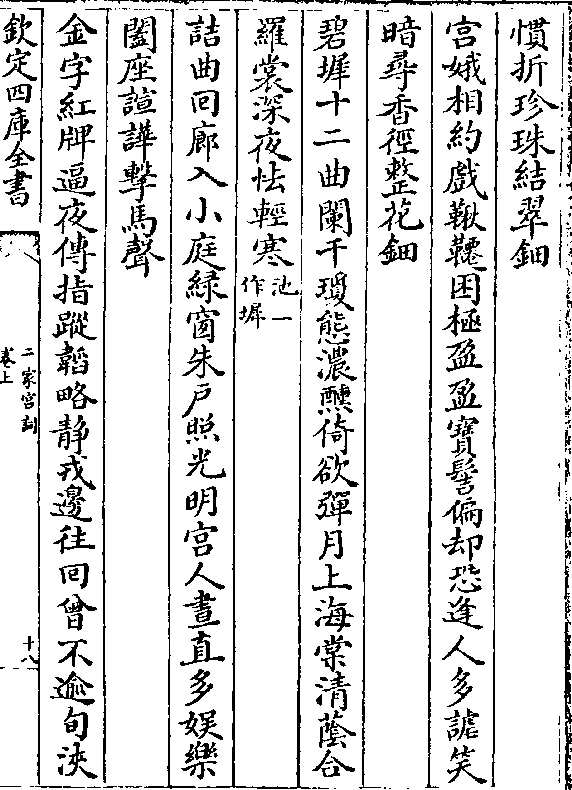 慣折珍珠結翠鈿
宫娥相約戲鞦韆困極盈盈寳髻偏却恐逢人多謔笑
暗尋香徑整花鈿
碧墀十二曲闌干瓊態濃醺倚欲殫月上海棠清蔭合
羅裳深夜怯輕寒池一作墀
詰曲回廊入小庭緑窗朱户照光明宫人晝直多娱樂
闔座諠譁擊馬聲
金字紅牌逼夜傳指蹤韜略静戎邊往回曾不逾旬浹
欽定四庫全書
二家宫詞
卷上
十八